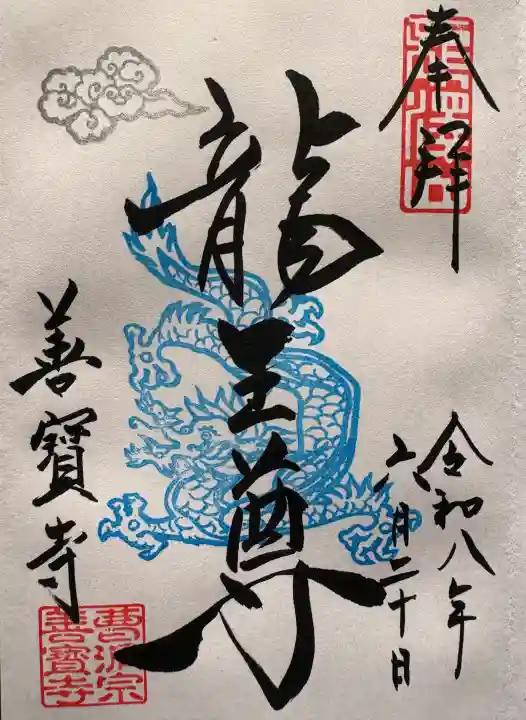 奉拝
令和八年
六月二十日
龍王尊
善寳寺
曹洞宗
善寳寺